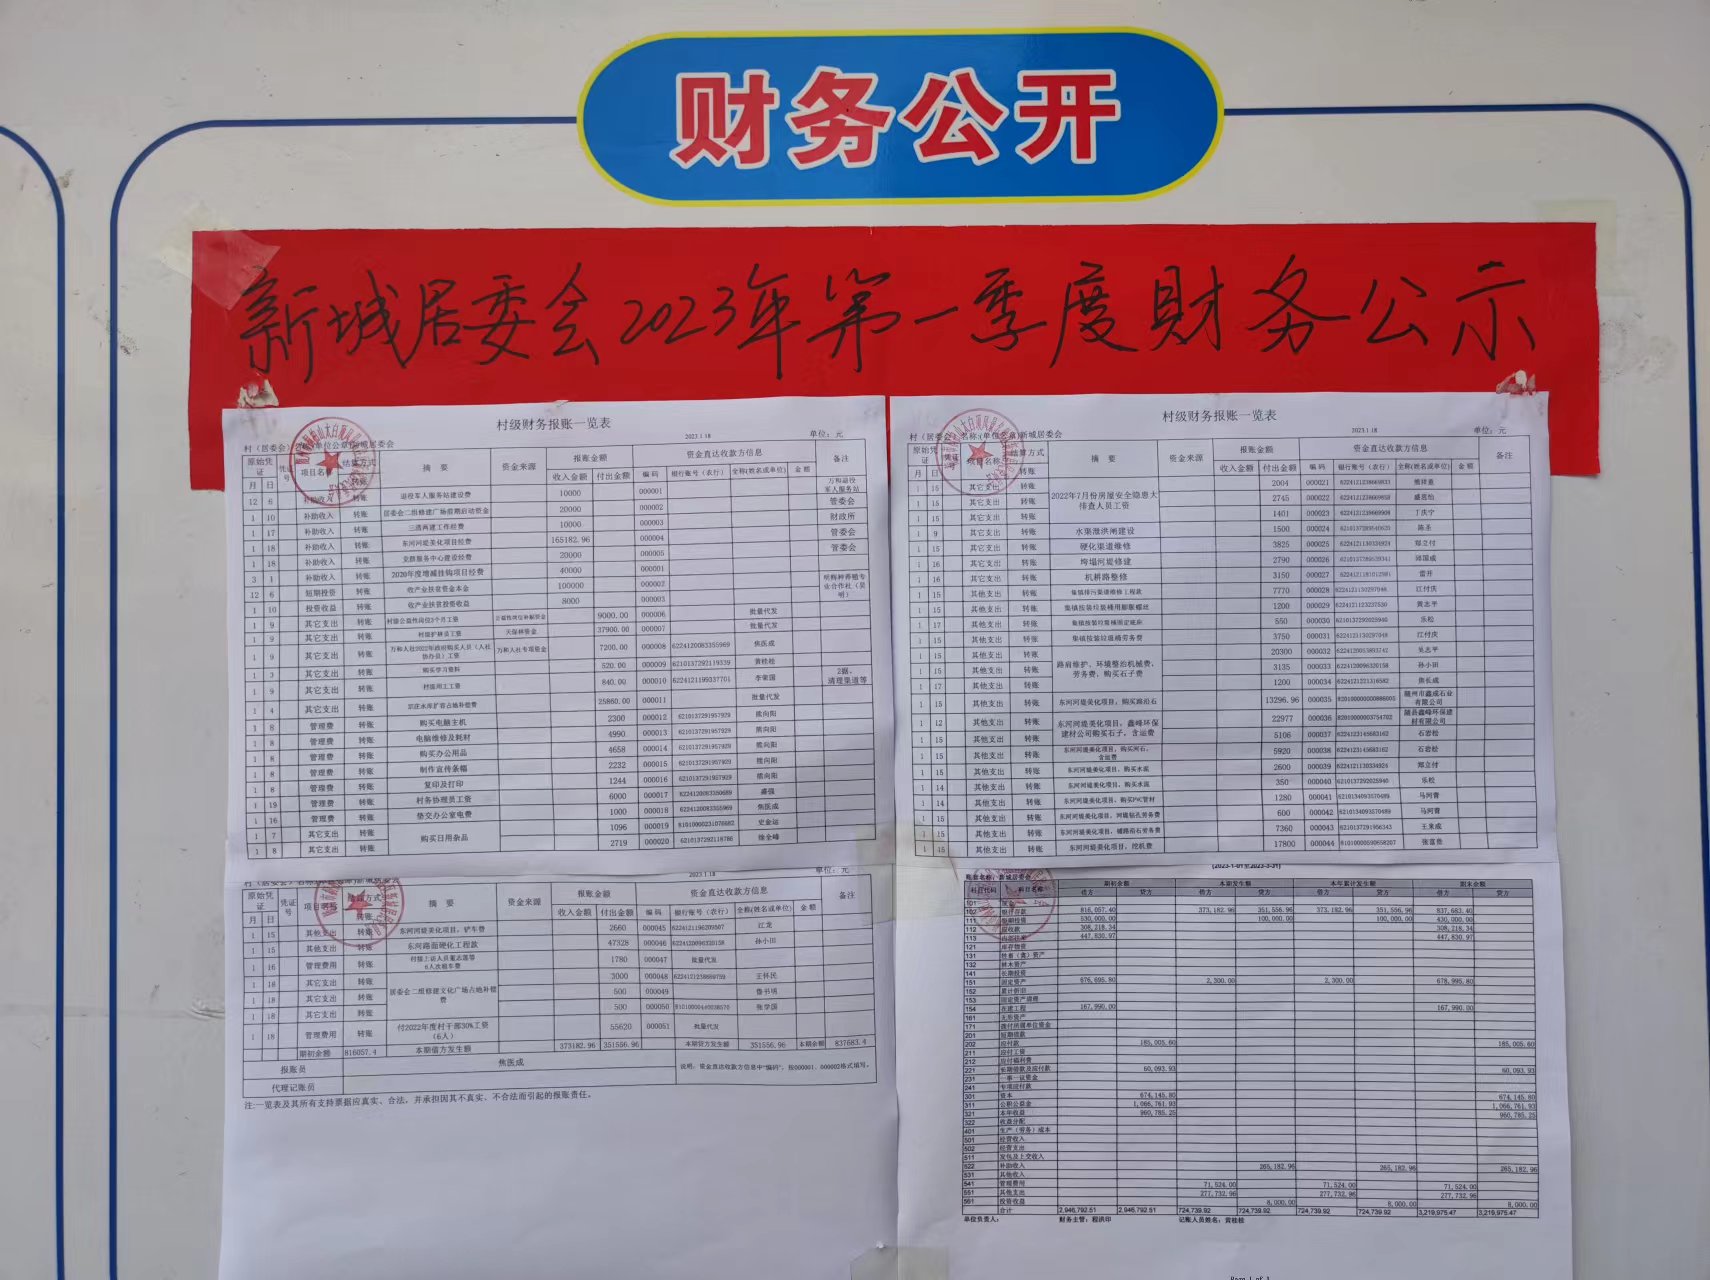 财务公开
新城居委会2023年第一季度财务公示
村级财务报账一览表
2023.1.18 单位:元
原始凭证 凭证号 项目名称 结算方式 摘要 资金来源 报账金额 资金直达收款方信息 备注
月 日 收入金额 付出金额 编码 银行账号(农行) 全称(姓名或单位) 金额
12 6 补助收入 转账 退役军人服务站建设费 10000 000001
1 10 补助收入 转账 居委会二组修建广场前期启动资金 20000 000002 管委会
1 17 补助收入 转账 10000 000003 财政所
1 18 补助收入 转账 东河河堤美化项目经费 165182.96 000004 管委会
1 18 补助收入 转账 党群服务中心建设经费 20000 000005 管委会
3 1 补助收入 转账 2020年度增减挂钩项目经费 40000 000001
12 6 短期投资 转账 收产业扶贫资金本金 100000 000002
1 10 投资收益 转账 收产业扶贫投资收益 8000 000003
1 9 其它支出 转账 9000.00 000006 批量代发
1 9 其它支出 转账 37900.00 000007 批量代发
1 9 其它支出 转账 7200.00 000008 焦医成
1 3 其它支出 转账 购买学习资料 520.00 000009 黄桂松
1 9 其它支出 转账 村级用工工资 840.00 000010 李荣国
1 4 其它支出 转账 25860.00 000011 批量代发
1 8 管理费 转账 购买电脑主机 2300 000012 6210137291957929 熊向阳
1 8 管理费 转账 电脑维修及耗材 4990 000013 6210137291957929 熊向阳
1 8 管理费 转账 购买办公用品 4658 000014 6210137291957929 熊向阳
1 8 管理费 转账 制作宣传条幅 2232 000015 6210137291957929 熊向阳
1 8 管理费 转账 复印及打印 1244 000016 6210137291957929 熊向阳
1 19 管理费 转账 村务协理员工资 6000 000017 盛强
1 16 管理费 转账 垫交办公室电费 1000 000018 焦医成
1 7 其它支出 转账 购买日用杂品 1096 000019 史金运
1 8 其它支出 转账 2719 000020 徐全峰
村级财务报账一览表
2023.1.18 单位:元
原始凭证 项目名称 结算方式 摘要 资金来源 报账金额 资金直达收款方信息 备注
收入金额 付出金额 编码 银行账号(农行) 全称(姓名或单位) 金额
1 15 其它支出 转账 2022年7月份房屋安全隐患大排查人员工资 2004 000021
1 15 其它支出 转账 2745 000022
1 15 其它支出 转账 1401 000023 丁庆宁
1 9 其它支出 转账 水渠泄洪闸建设 1500 000024 陈圣
1 15 其它支出 转账 硬化渠道维修 3825 000025 郑立付
1 16 其它支出 转账 垮塌河堤修建 2790 000026 邱国成
1 16 其它支出 转账 机耕路整修 3150 000027 雷开
1 15 其他支出 转账 集镇排污渠道维修工程款 7770 000028 江付庆
1 15 其他支出 转账 集镇按装垃圾桶用膨胀螺丝 1200 000029 黄志平
1 17 其他支出 转账 集镇按装垃圾桶固定底座 550 000030 乐松
1 15 其他支出 转账 集镇按装垃圾桶劳务费 3750 000031 江付庆
1 15 其他支出 转账 路肩维护、环境整治机械费、劳务费,购买石子费 20300 000032 吴志平
1 15 其他支出 转账 3135 000033 孙小田
1 17 其他支出 转账 1200 000034 焦长成
1 15 其他支出 转账 东河河堤美化项目,购买路沿石 13296.96 000035 随州市鑫成石业有限公司
1 12 其他支出 转账 东河河堤美化项目,鑫峰环保建材公司购买石子,含运费 22977 000036 随县鑫峰环保建材有限公司
1 15 其他支出 转账 5106 000037 石岩松
1 15 其他支出 转账 东河河堤美化项目,购买河石,含运费 5920 000038 石岩松
1 15 其他支出 转账 东河河堤美化项目,购买水泥 2600 000039 郑立付
1 14 其他支出 转账 东河河堤美化项目,购买水泥 350 000040 乐松
1 14 其他支出 转账 东河河堤美化项目,购买PVC管材 1280 000041 马河青
1 15 其他支出 转账 东河河堤美化项目,河堤钻孔劳务费 600 000042 马河青
1 15 其他支出 转账 东河河堤美化项目,铺路沿石劳务费 7360 000043 王来成
1 15 其他支出 转账 东河河堤美化项目,挖机费 17800 000044 张富贵
2023.1.18 单位:元
原始凭证 凭证号 项目名称 结算方式 摘要 资金来源 报账金额 资金直达收款方信息 备注
月 日 收入金额 付出金额 编码 银行账号(农行) 全称(姓名或单位) 金额
1 15 其他支出 转账 东河河堤美化项目,铲车费 2660 000045 江龙
1 15 其他支出 转账 东河路面硬化工程款 47328 000046 孙小田
1 16 管理费用 转账 1780 000047 批量代发
1 18 其它支出 转账 居委会二组修建文化广场占地补偿费 3000 000048 王怀民
1 18 其它支出 转账 500 000049 鲁书明
1 18 其它支出 转账 500 000050 张学国
1 18 管理费用 转账 付2022年度村干部30%工资(6人) 55620 000051 批量代发
期初余额 816057.4 本期借方发生额 373182.96 351556.96 本期贷方发生额 351556.96 本期余额 837683.4
报账员 焦医成 说明:资金直达收款方信息中“编码”,按000001、000002格式填写。
代理记账员
注:一览表及其所有支持票据应真实、合法,并承担因其不真实、不合法而引起的报账责任。
(2023-1-01至2023-3-31)
账套名称:新城居委会
科目代码 科目名称 期初余额 本期发生额 本年累计发生额 期末余额
借方 贷方 借方 贷方 借方 贷方 借方 贷方
101 现金
102 银行存款 816,057.40 373,182.96 351,556.96 373,182.96 351,556.96 837,683.40
111 短期投资 530,000.00 100,000.00 100,000.00 430,000.00
112 应收款 308,218.34 308,218.34
113 内部往来 447,830.97 447,830.97
121 库存物资
131 牲畜(禽)资产
132 林木资产
141 长期投资
151 固定资产 676,695.80 2,300.00 2,300.00 678,995.80
152 累计折旧
153 固定资产清理
154 在建工程 167,990.00 167,990.00
161 无形资产
171 拨付所属单位资金
201 短期借款
202 应付款 185,005.60 185,005.60
211 应付工资
212 应付福利费
221 长期借款及应付款 60,093.93 60,093.93
231 一事一议资金
241 专项应付款
301 资本 674,145.80 674,145.80
311 公积公益金 1,066,761.93 1,066,761.93
321 本年收益 960,785.25 960,785.25
322 收益分配
401 生产(劳务)成本
501 经营收入
502 经营支出
511 发包及上交收入
522 补助收入 265,182.96 265,182.96 265,182.96
531 其他收入
541 管理费用 71,524.00 71,524.00 71,524.00
551 其他支出 277,732.96 277,732.96 277,732.96
561 投资收益 8,000.00 8,000.00 8,000.00
合计 2,946,792.51 2,946,792.51 724,739.92 724,739.92 724,739.92 724,739.92 3,219,975.47 3,219,975.47
单位负责人: 财务主管:程洪印 记账人员姓名:黄桂松